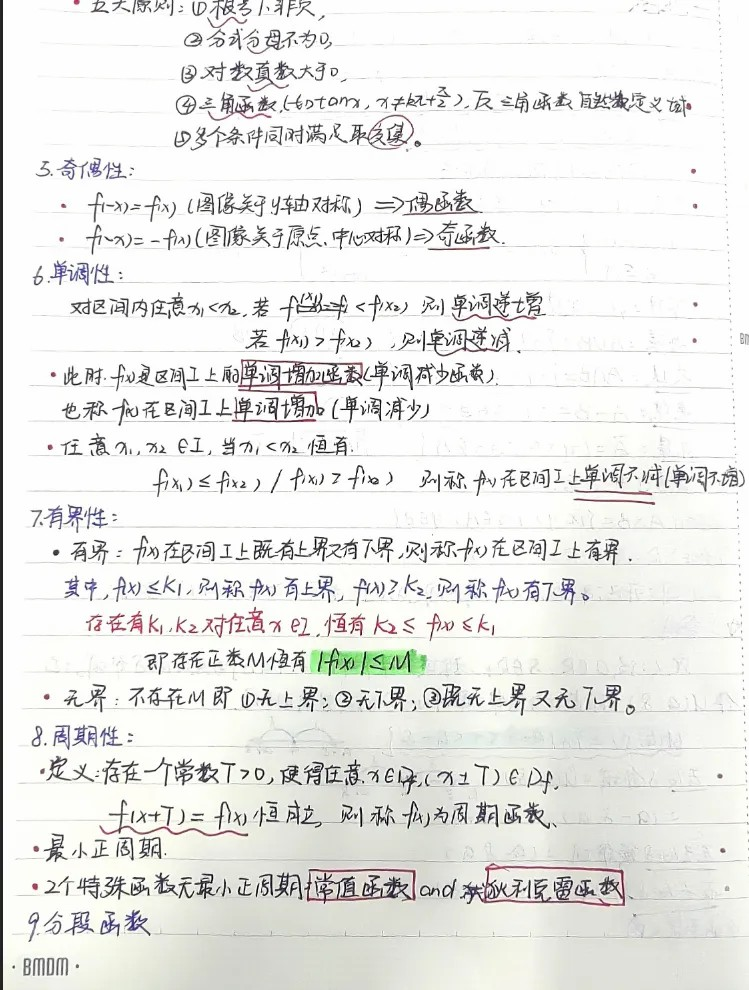 · 五大原则：①根号下非负,
②分式分母不为0,
③对数真数大于0,
④三角函数,(-6)tanx, x≠kπ+π/2), 反三角函数自然数定义域·
⑤多个条件同时满足取交集。
5.奇偶性：
· f(-x)=f(x) (图像关于y轴对称) ⟹偶函数
· f(-x)=-f(x)(图像关于原点,中心对称)⟹奇函数.
6.单调性：
对区间内任意x₁<x₂, 若 f(x₁) < f(x₂) 则单调递增
若 f(x₁) > f(x₂) ,则单调递减.
· 此时.f(x)是区间I上的单调增加函数(单调减少函数).
也称f(x)在区间I上单调增加(单调减少)
· 任意x₁,x₂∈I, 当x₁<x₂恒有.
f(x₁)≤f(x₂) / f(x₁)≥f(x₂) 则称f(x)在区间I上单调不减(单调不增)
7.有界性：
· 有界：f(x)在区间I上既有上界又有下界,则称f(x)在区间I上有界.
其中,f(x)≤K₁,则称f(x)有上界, f(x)≥K₂,则称f(x)有下界。
存在有K₁,K₂对任意x∈I,恒有K₂≤f(x)≤K₁
即存在正数M恒有|f(x)|≤M
· 无界：不存在M即①无上界；②无下界；③既无上界又无下界。
8.周期性：
·定义：存在一个常数T>0,使得任意x∈Df,(x±T)∈Df,
f(x+T)=f(x)恒成立,则称f(x)为周期函数、
·最小正周期.
·2个特殊函数无最小正周期：常值函数 and 狄利克雷函数、
9.分段函数
·BMDM·